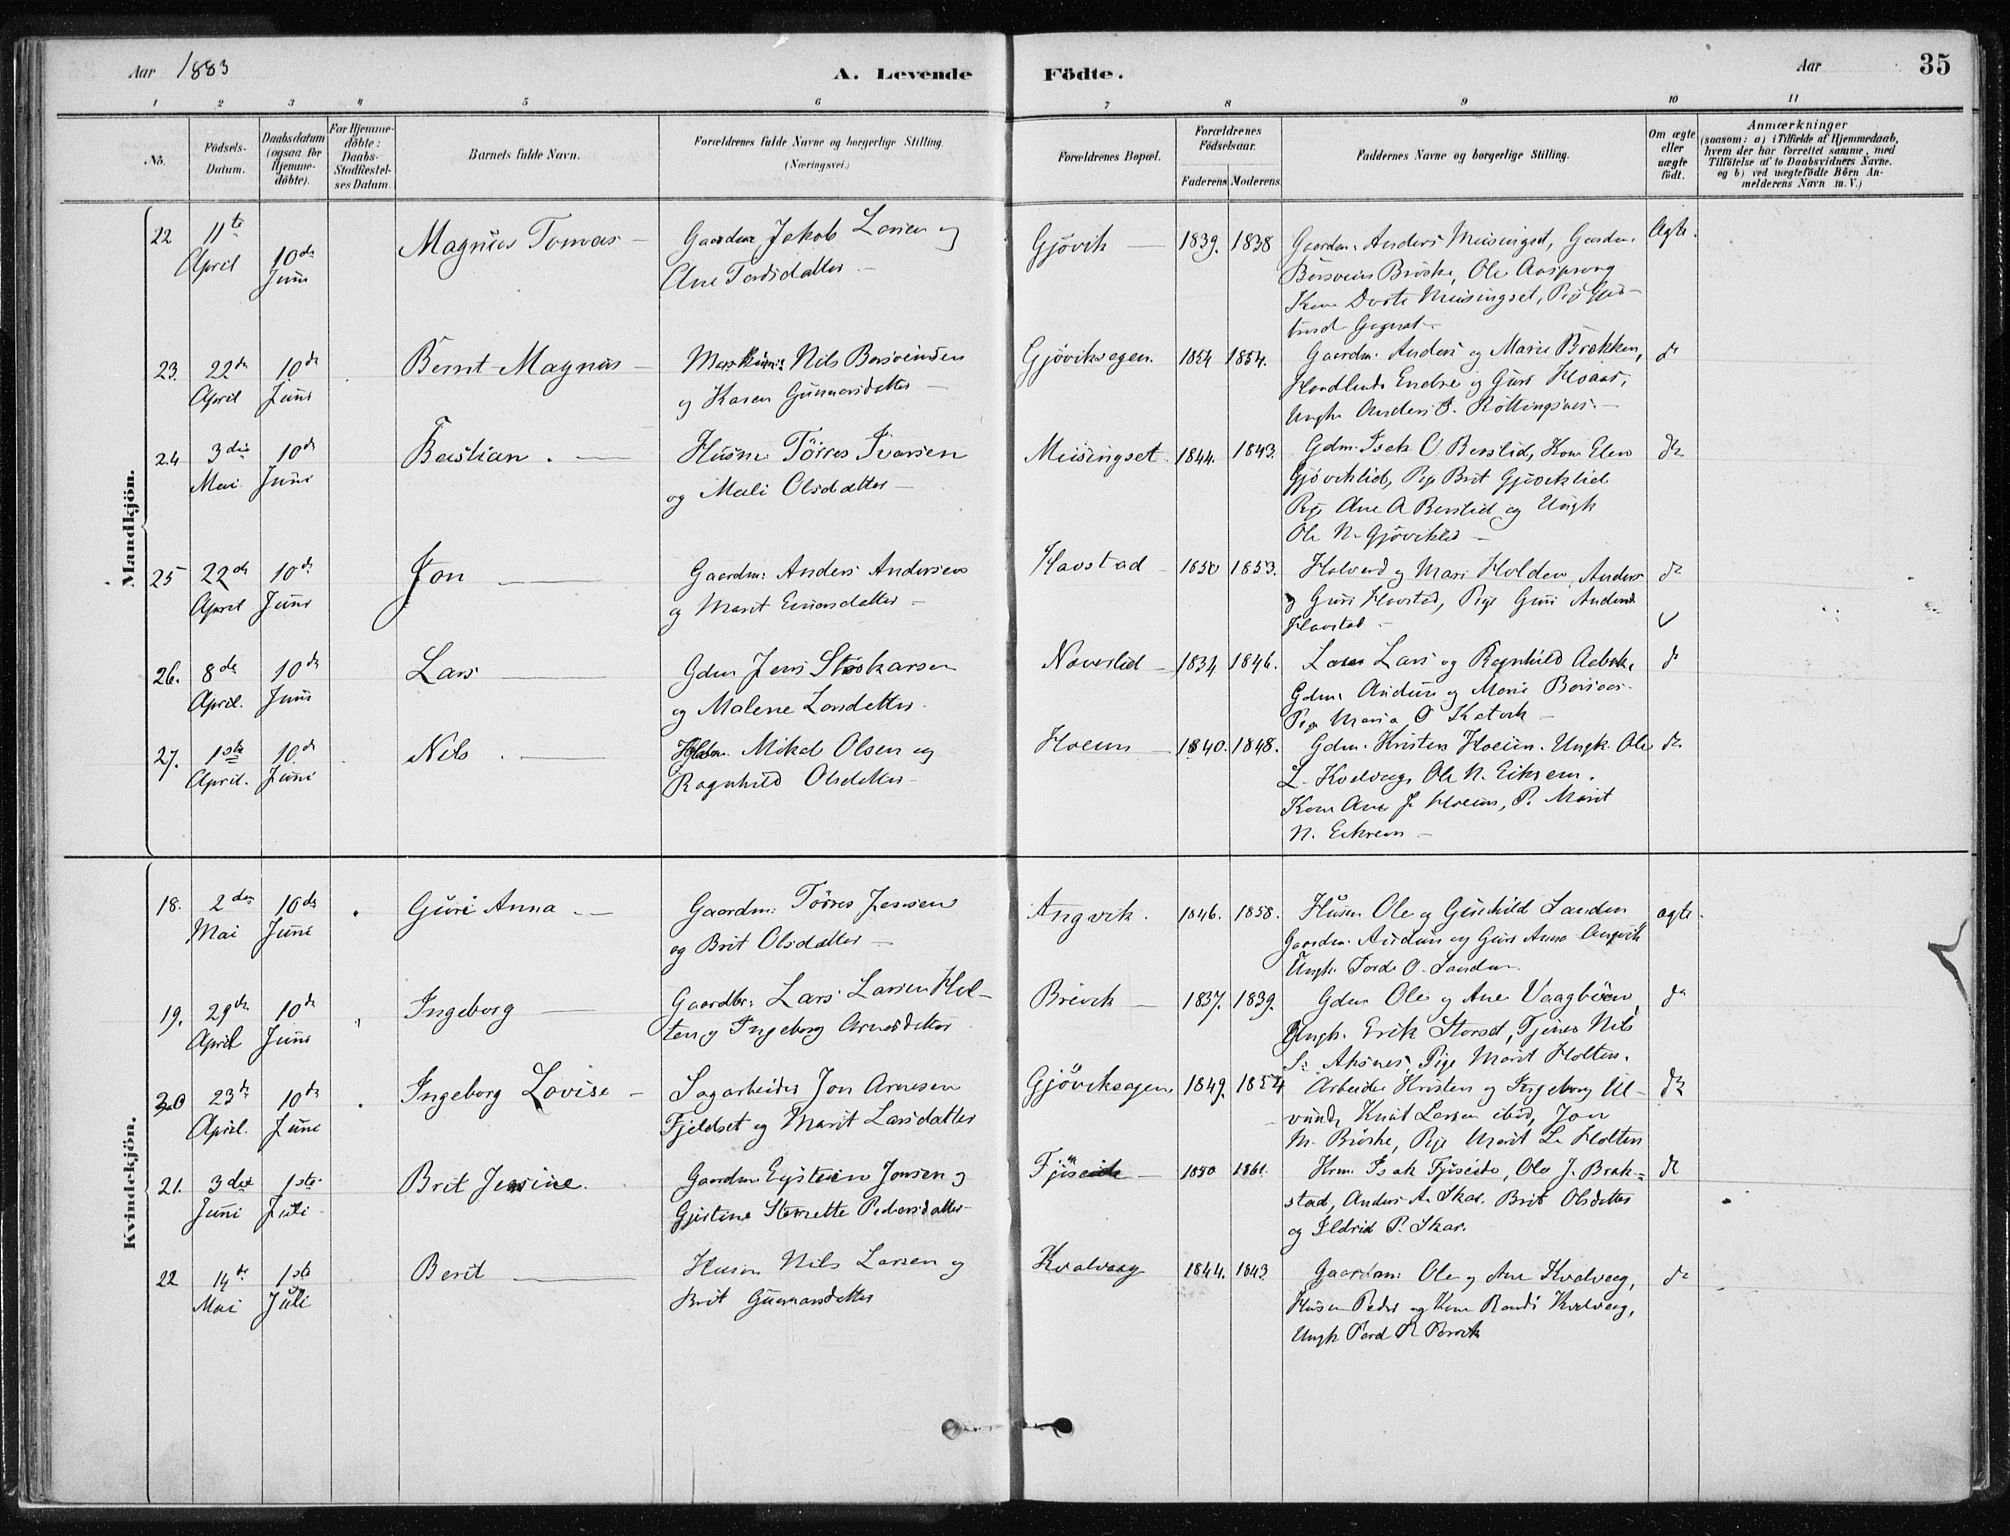 Aar 1883
A. Levende
Födte.
Aar
35
1 2 3 4 5 6 7 8 9 10 11
No.
Födsels-
Datum.
Daabsdatum
(ogsaa for
Hjemme-
döbte).
For Hjemme-
döbte:
Daabs-
Stadfæstel-
ses Datum.
Barnets fulde Navn.
Forældrenes fulde Navne og borgerlige Stilling
(Næringsvei.)
Forældrenes Bopæl.
Forældrenes
Födselsaar.
Faderens
Moderens
Faddernes Navne og borgerlige Stilling.
Om ægte
eller
uægte
födt.
Anmærkninger
(saasom: a) i Tilfælde af Hjemmedaab,
hvem der har forrettet samme, med
Tilföielse af to Daabsvidners Navne.
og b) ved uægtefödte Börn An-
melderens Navn m. V.)
Mandkjön.
22
11te
April
10de
Juni
Magnus Tomas
Gaardm. Jakob Larsen og
Ane Tordsdatter
Gjövik
1839. 1838
Gaardm. Anders Meisingset, Gaardm.
Brüske, Ole Aasprong
Kone Dorte Meisingset, Pige
Ægte.
23.
22de
April
10de
Juni
Bernt Magnus
Nils
og Karen Gunnarsdatter
Gjövikvegen.
1854 1854.
Gaardm. Anders og Marie Brækken,
Endre og Guri Hoaas,
Ungk. Anders Röttingsnes.
do
24
3die
Mai
10de
Juni
Bastian
Husm. Törres Ivarsen
og Mali Olsdatter
Meisingset
1844. 1843.
Gdm. Isak O Berslid, Kone Elen
Gjöviklid, Pige Brit Gjöviklid
Pige Ane A Berslid og Ungk
Ole N. Gjöviklid
do
25
22de
April
10de
Juni
Jon
Gaardm: Anders Andersen
og Marit Einarsdatter
Havstad
1850 1853.
Halvord og Mari Holden, Anders
og Guri Havstad, Pige Guri Andersd.
Havstad
do
26.
8de
April.
10de
Juni
Lars
Gdm Jens
og Malene Larsdatter.
Naverlid
1834 1846.
Lars og Ragnhild
Gdm. Audun og Marie
Pige Maria O
do
27.
1ste
April.
10de
Juni
Nils
Mikal Olsen og
Ragnhild Olsdatter
Hoem
1840. 1848.
Gdm. Kristen Hoem. Ungk. Ole
L. Kvalvaag Ole N. Eikrem.
Kone Ane J. Hoem, P. Marit
N. Eikrem
do
Kvindekjön.
18.
2den
Mai
10de
Juni
Guri Anna
Gaardm: Törres Jensen
og Brit Olsdatter
Angvik.
1846. 1858.
Husm Ole og Gunhild Sanden
Gaardm. Audun og Guri Anna Angvik
Ungk. Torde O. Sanden.
ægte
19.
29de
April
10de
Juni
Ingeborg
Gaardbr: Lars Larsen Hol-
ten og Ingeborg Arnesdatter
Brevik
1837. 1839.
Gdm Ole og Ane Vaagböen
Ungk. Erik Storset, Tjener Nils
S. Aksnes, Pige Marit Holten.
do
20
23de
April.
10de
Juni
Ingeborg Lovise
Sagarbeider Jon Arnesen
Fjeldset og Marit Larsdatter
Gjöviksagen
1849. 1854
Arbeider Kristen og Ingeborg Ul-
vund, Knut Larsen ibid, Jon
M. Brüske, Pige Marit L. Holten
do
21.
3die
Juni
1ste
Juli
Brit Jensine.
Gaardm Eystein Jonsen og
Gjertine Pedersdatter
1850 1861.
Isak Fjöseide, Ole J. Brak-
stad, Anders A. Skar. Brit Olsdatter
og Ildrid P. Skar.
do
22
14de
Mai
1ste
Juli
Berit
Husm Nils Larsen og
Brit Gunnarsdatter
Kvalvaag
1844. 1843
Gaardm: Ole og Ane Kvalvaag,
Husm Peder og Kone Randi Kvalvaag,
Ungk
do